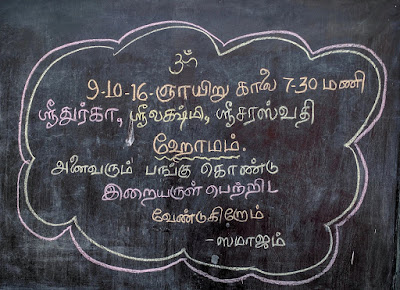 ௐ
9-10-16-ஞாயிறு காலை 7-30 மணி
ஸ்ரீதுர்கா, ஸ்ரீலக்ஷ்மி, ஸ்ரீசரஸ்வதி
ஹோமம்.
அனைவரும் பங்கு கொண்டு
இறையருள் பெற்றிட
வேண்டுகிறோம்
-ஸமாஜம்